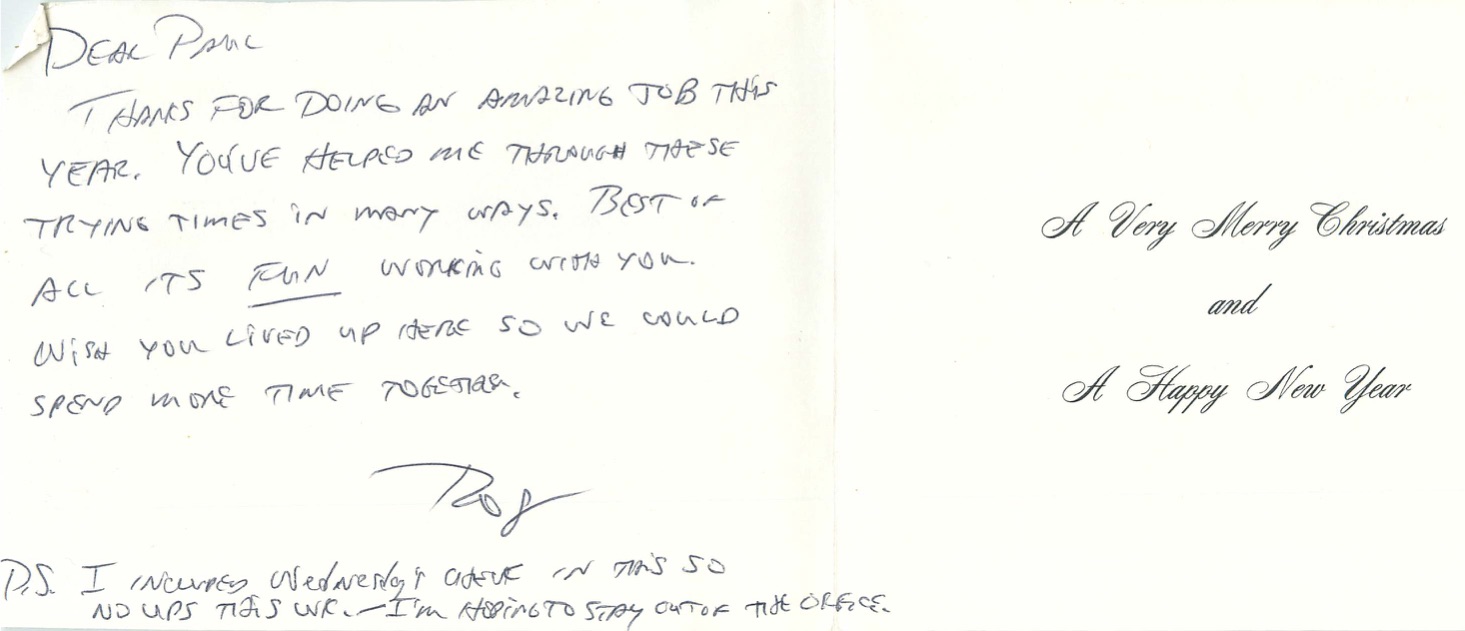 DEAR PAUL
THANKS FOR DOING AN AMAZING JOB THIS
YEAR. YOU'VE HELPED ME THROUGH THESE
TRYING TIMES IN MANY WAYS. BEST OF
ALL ITS FUN WORKING WITH YOU.
WISH YOU LIVED UP HERE SO WE COULD
SPEND MORE TIME TOGETHER.
P.S. I INCLUDED Wednesday's CHECK IN THIS SO
NO UPS THIS WK. — I'm HOPING TO STAY OUT OF THE OFFICE.
A Very Merry Christmas
and
A Happy New Year